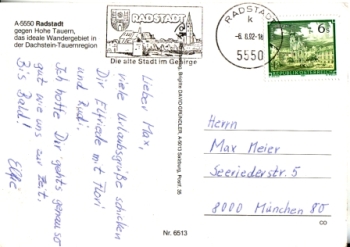 A-5550 Radstadt
gegen Hohe Tauern,
das ideale Wandergebiet in
der Dachstein-Tauernregion
RADSTADT
Die alte Stadt im Gebirge
RADSTADT
k
-6.8.92-18
5550
6S
REPUBLIK ÖSTERREICH
Lieber Max,
viele Urlaubsgrüße schicken
Dir Elfriede mit Flori
und Rud.
Ich hoffe Dir geht's genauso
gut wie uns zur Zeit.
Bis Bald!
Elfie
A-5013 Salzburg, Postf. 35
Nr. 6513
Herrn
Max Meier
Seeriederstr. 5
8000 München 80
CO